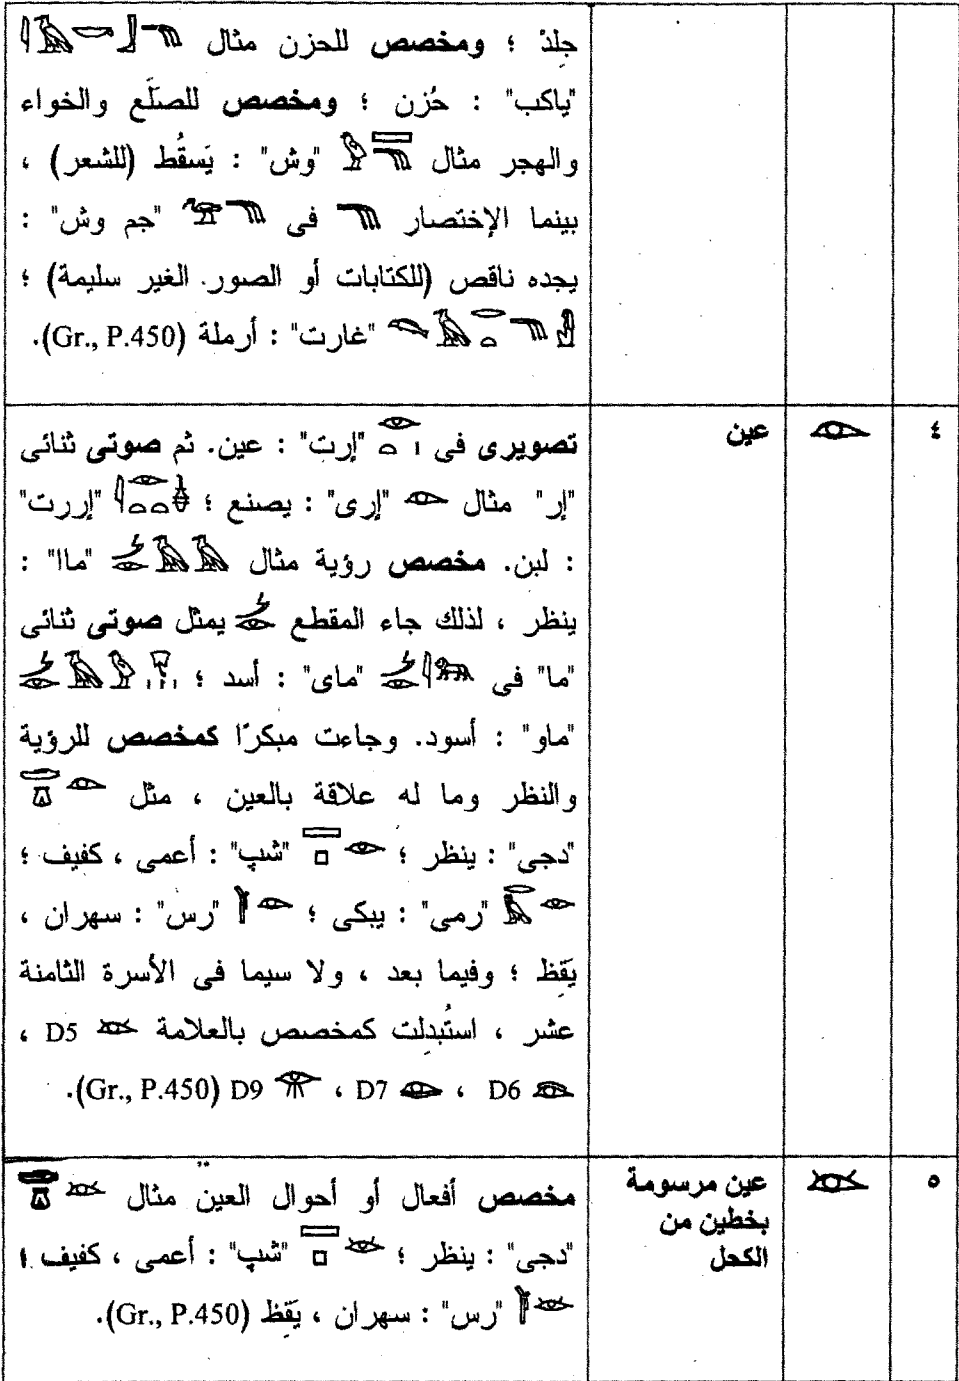 جلِدْ ؛ ومخصص للحزن مثال 𓇋𓄿𓎡𓃀𓁸
"ياكب" : حُزن ؛ ومخصص للصلَع والخواء
والهجر مثال "وش" : يَسقُط (للشعر) ،
بينما الإختصار فى "جم وش" :
يجده ناقص (للكتابات أو الصور الغير سليمة) ؛
"غارت" : أرملة (Gr., P.450).
٤
عين
تصويرى فى "إرت" : عين. ثم صوتى ثنائى
"إر" مثال "إرى" : يصنع ؛ "إررت"
: لبن. مخصص رؤية مثال "ماا" :
ينظر ، لذلك جاء المقطع يمثل صوتى ثنائى
"ما" فى "ماى" : أسد ؛
"ماو" : أسود. وجاءت مبكرًا كمخصص للرؤية
والنظر وما له علاقة بالعين ، مثل
"دجى" : ينظر ؛ "شپ" : أعمى ، كفيف ؛
"رمى" : يبكى ؛ "رس" : سهران ،
يَقِظ ؛ وفيما بعد ، ولا سيما فى الأسرة الثامنة
عشر ، استُبدِلت كمخصص بالعلامة D5 ،
D6 ، D7 ، D9 (Gr., P.450).
٥
عين مرسومة
بخطين من
الكحل
مخصص أفعال أو أحوال العين مثال
"دجى" : ينظر ؛ "شپ" : أعمى ، كفيف ؛
"رس" : سهران ، يَقِظ (Gr., P.450).